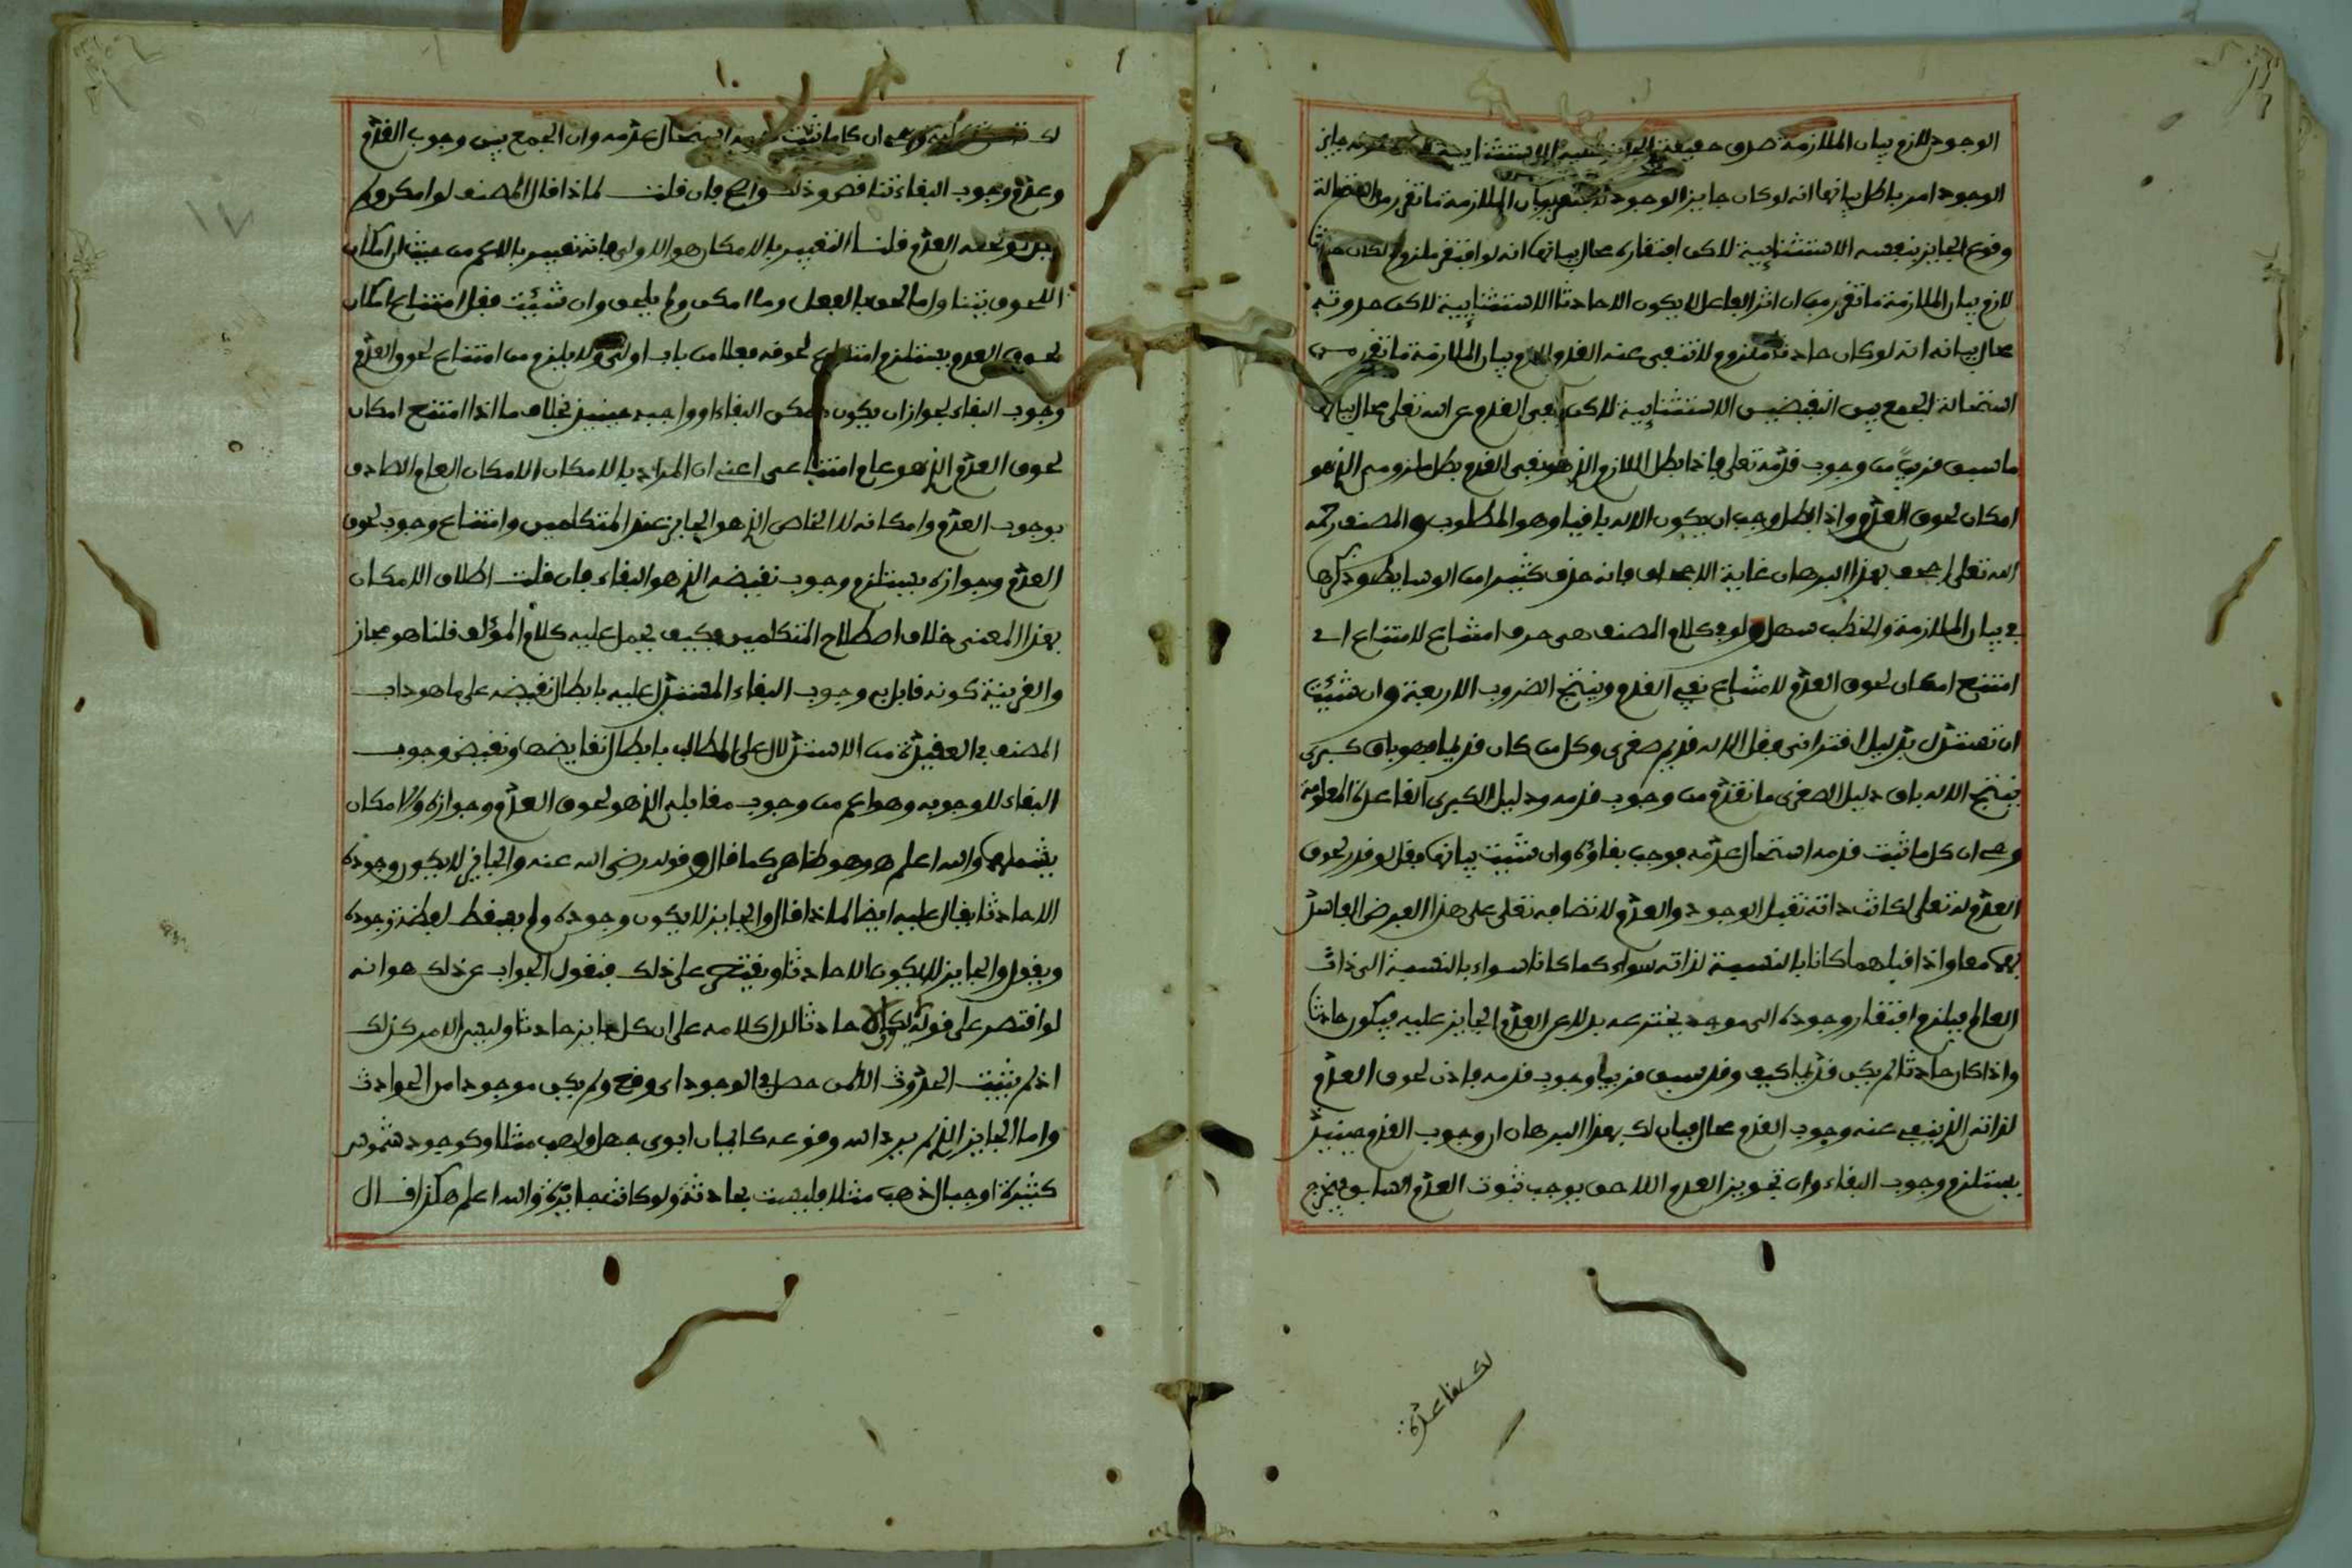 الوجود لازم بيان الملازمة صدق حقيقة الجائز عليه الاستثنايية جايز
الوجود امر باطل بيانها انه لوكان جايز الوجود بيان الملازمة ما تقرر من استحالة
وقوع الجايز بنفسه الاستثنايية لاكن افتقاره محال بيانها انه لو افتقر ملزوم لكان حادثا
لازم بيان الملازمة ما تقرر من ان اثر الفاعل لا يكون الا حادثا الاستثنايية لاكن حدوثه
محال بيانه انه لوكان حادثا ملزوم لانتفى عنه القدم لازم بيان الملازمة ما تقرر من
استحالة الجمع بين النقيضين الاستثنايية لاكن نفي القدم عن الله تعلى محال بيانه
ما سبق قريبا من وجوب قدمه تعلى فاذا بطل اللازم الذي هو نفي القدم بطل ملزومه الذي هو
امكان لحوق العدم واذا بطل وجب ان يكون الاله باقيا وهو المطلوب والمصنف رحمه
الله تعلى اجحف بهذا البرهان غاية الاجحاف فانه حذف كثيرا من الوسايط وذكرها
في بيان الملازمة والخطب سهل ولو في كلام المصنف هي حرف امتناع لامتناع اي
امتنع امكان لحوق العدم لامتناع نفي القدم وينتج الضروب الاربعة وان شئت
ان تستدل بدليل اقتراني فقل الاله قديم صغرى وكل من كان قديما فهو باق كبرى
ينتج الاله باق دليل الصغرى ما تقدم من وجوب قدمه ودليل الكبرى القاعدة المعلومة
وهي ان كل ما ثبت قدمه استحال عدمه فوجب بقاؤه وان شئت بيانها فقل لو قدر لحوق
العدم له تعلى لكانت ذاته تقبل الوجود والعدم لاتصافه تعلى على هذا الفرض الفاسد
بهما معا واذا قبلهما كانا بالنسبة لذاته سواء كما كانا سواء بالنسبة الى ذات
العالم فيلزم افتقار وجوده الى موجد يخترعه بدلا عن العدم الجايز عليه فيكون حادثا
واذا كان حادثا لم يكن قديما كيف وقد سبق قريبا وجوب قدمه فاذن لحوق العدم
لذاته الذي ينفي عنه وجوب القدم محال فبان لك بهذا البرهان ان وجوب القدم حينئذ
يستلزم وجوب البقاء وان تجويز العدم اللاحق يوجب ثبوت العدم السابق فيخرج
لك قاعدة
لك وهي ان كل ما ثبت قدمه استحال عدمه وان الجمع بين وجوب القدم
وعدم وجوب البقاء تناقض وذلك واضح فان قلت لماذا قال المصنف لو امكن ولم
يقل لو لحقه العدم قلنا التعبير بالامكان هو الاولى فانه تعبير بالاعم من حيث ان امكان
اللحوق يتناول ما لحق بالفعل وما امكن ولم يلحق وان شئت فقل امتناع امكان
لحوق العدم يستلزم امتناع لحوقه فعلا من باب اولى ولا يلزم من امتناع لحوق العدم
وجوب البقاء لجواز ان يكون ممكن البقاء او واجبه حينئذ بخلاف ما اذا امتنع امكان
لحوق العدم الذي هو عام امتنا عى اعني ان المراد بالامكان الامكان العام الصادق
بوجوب العدم وامكانه لا الخاص الذي هو الجايز عند المتكلمين وامتناع وجوب لحوق
العدم وجوازه يستلزم وجوب نقيضه الذي هو البقاء فان قلت اطلاق الامكان
بهذا المعنى خلاف اصطلاح المتكلمين فكيف يحمل عليه كلام المؤلف قلنا هو مجاز
والقرينة كونه قابل به وجوب البقاء المستدل عليه بابطال نقيضه على ما هو داب
المصنف في العقيدة من الاستدلال على المطالب بابطال نقايضها ونقيض وجوب
البقاء للوجوبه وهو اعم من وجوب مقابله الذي هو لحوق العدم وجوازه والامكان
يشملهما والله اعلم وهو ظاهر كما قال وقوله رضي الله عنه والجايز لا يكون وجوده
الا حادثا يقال عليه ايضا لماذا قال والجايز لا يكون وجوده ولم يسقط لفظة وجوده
ويقول والجايز لا يكون الا حادثا ويقتصر على ذلك فنقول الجواب عن ذلك هو انه
لو اقتصر على قوله لا يكون الا حادثا لدل كلامه على ان كل جايز حادثا وليس الامر كذلك
اذ لم يثبت الحدوث الا لمن حصل في الوجود اي وقع ولم يكن موجودا من الحوادث
واما الجايز الذي لم يرد الله وقوعه كايمان ابوي جهل ولهب مثلا وكوجود شموس
كثيرة او جبال ذهب مثلا فليست بحادثة ولو كانت جايزة والله اعلم هكذا قال